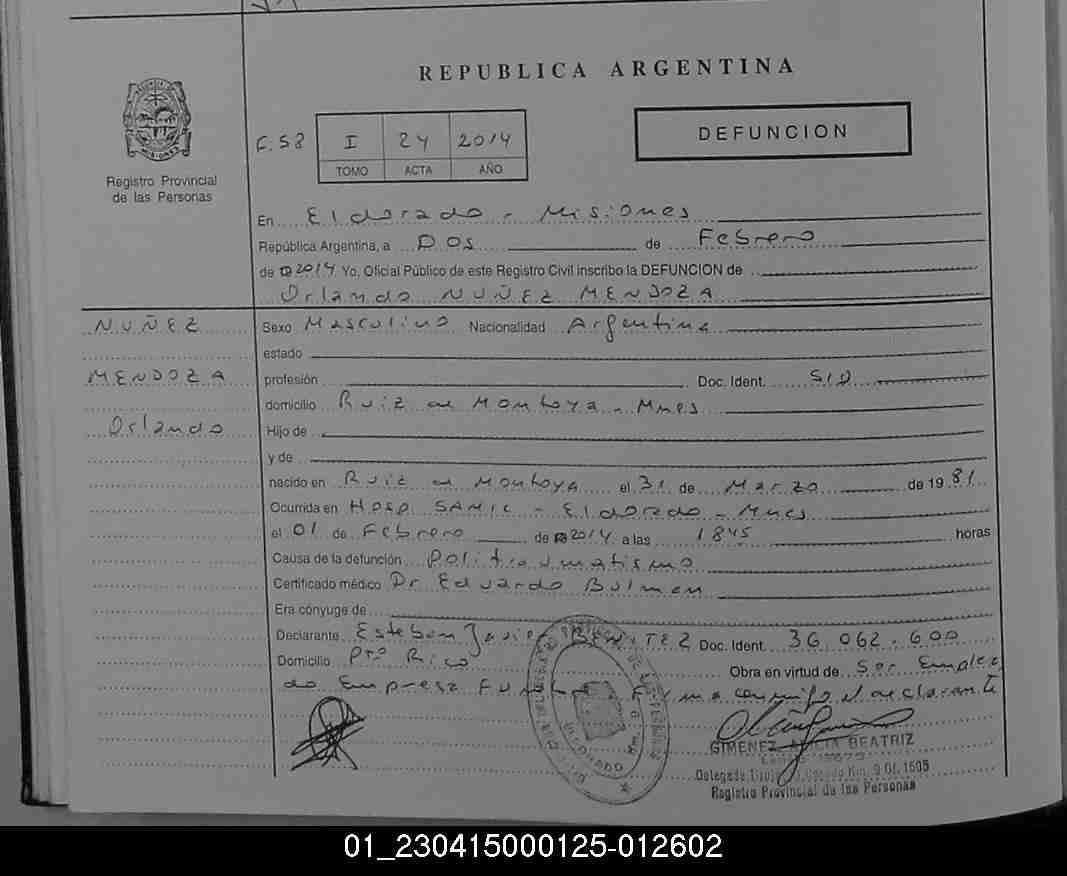 REPUBLICA ARGENTINA
Registro Provincial
de las Personas
F.58
I 24 2014
TOMO ACTA AÑO
DEFUNCION
En Eldorado - Misiones
República Argentina, a DOS de Febrero
de 2014 Yo, Oficial Público de este Registro Civil inscribo la DEFUNCION de
Orlando NUÑEZ MENDOZA
NUÑEZ
MENDOZA
Orlando
Sexo Masculino Nacionalidad Argentina
estado
profesión Doc. Ident. S/D
domicilio Ruiz de Montoya - Mnes
Hijo de
y de
nacido en Ruiz de Montoya el 31 de Marzo de 1981
Ocurrida en Hosp. SAMIC - Eldorado - Mnes
el 01 de Febrero de 2014 a las 1845 horas
Causa de la defunción Politraumatismo
Certificado médico Dr Eduardo Bulman
Era cónyuge de
Declarante Esteban Javier BENITEZ Doc. Ident. 36.062.600
Domicilio Pto Rico Obra en virtud de Ser Emplea
do Empresa Funebre Firma conmigo el declarante
GIMENEZ ALICIA BEATRIZ
Registro Provincial de las Personas
01_230415000125-012602